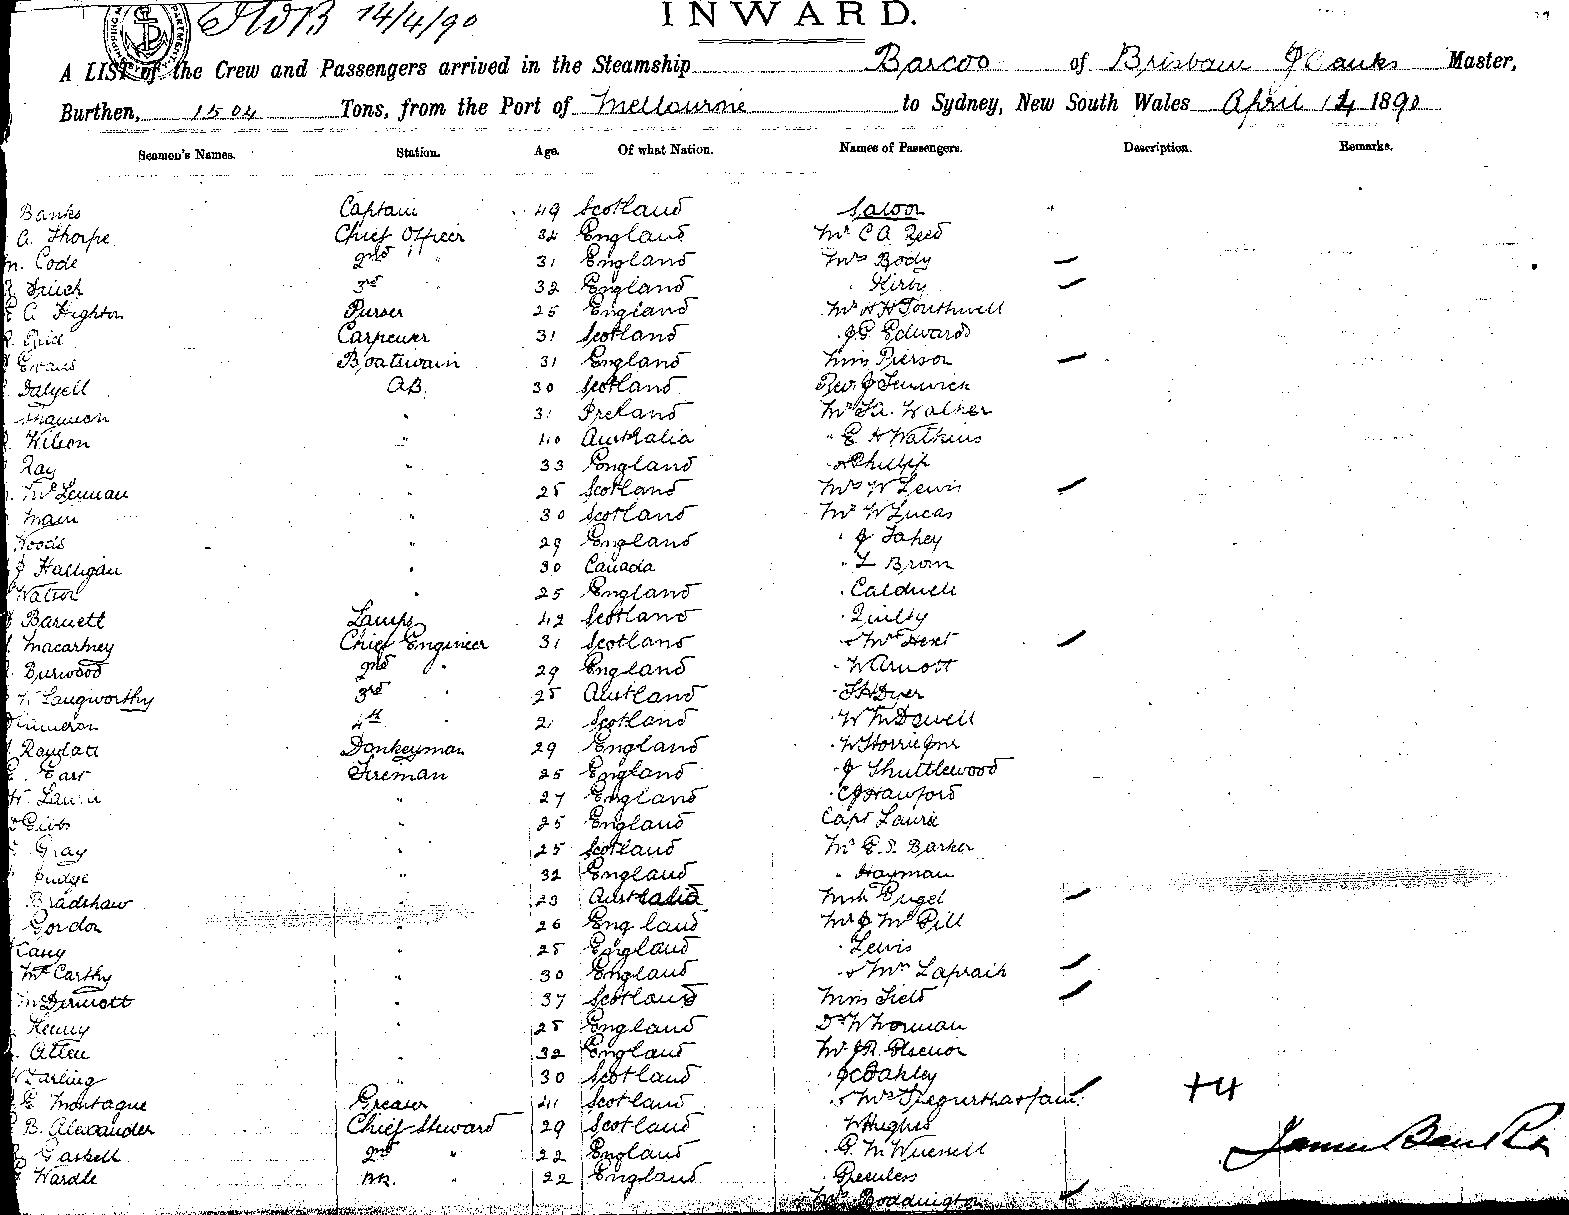 14/4/90
INWARD.
A LIST of the Crew and Passengers arrived in the Steamship Barcoo of Brisbane J Banks Master,
Burthen, 1504 Tons, from the Port of Melbourne to Sydney, New South Wales April 14 1890
Seamen's Names. Station. Age. Of what Nation. Names of Passengers. Description. Remarks.
Banks Captain 49 Scotland Saloon
A. Thorpe Chief Officer 34 England Mr C A Reed
Code 2nd " 31 England Mrs Body
3rd " 32 England " Kirby
C. Highton Purser 25 England Mr H H Southwell
Reid Carpenter 31 Scotland " J G Edwards
Evans Boatswain 31 England Miss Pierson
Dalyell AB. 30 Scotland Rev J Fenwick
Shannon " 31 Ireland Mr Walker
Wilson " 40 Australia " E H Watkins
Ray " 33 England Philipp
McLennan " 25 Scotland Mrs W Lewis
Main " 30 Scotland Mr W Lucas
Woods " 29 England " J Fahey
J Halligan " 30 Canada " Brown
Watson " 25 England " Caldwell
Barnett Lamps 42 Scotland " Quilty
Macartney Chief Engineer 31 Scotland " & Mrs Hext
Burwood 2nd " 29 England " W Arnott
Langworthy 3rd " 25 " Dyer
Cameron 4th " 21 Scotland " W McDowell
Donkeyman 29 England " W Horric Jnr
Earl Fireman 25 England " J Shuttlewood
" 27 England " Crawford
Gibbs " 25 England Capt Laurie
Gray " 25 Scotland Mr E. S. Barker
Judge " 32 England " Hayman
Bradshaw " 23 Australia Miss Pugel
Gordon " 26 England Mr J McPill
" 25 England " Lewis
McCarthy " 30 England " & Mrs Lapraik
McDermott " 37 Scotland Miss Field
Kenny " 25 England Dr
Allen " 32 England Mr J R
Darling " 30 Scotland " Oakley
E Montague Greaser 41 Scotland " & Mrs
B. Alexander Chief Steward 29 Scotland " W Hughes
Gaskell 2nd " 22 England " G. M.
Wardle " 22 England
& Mrs Boddington
+4
James Banks